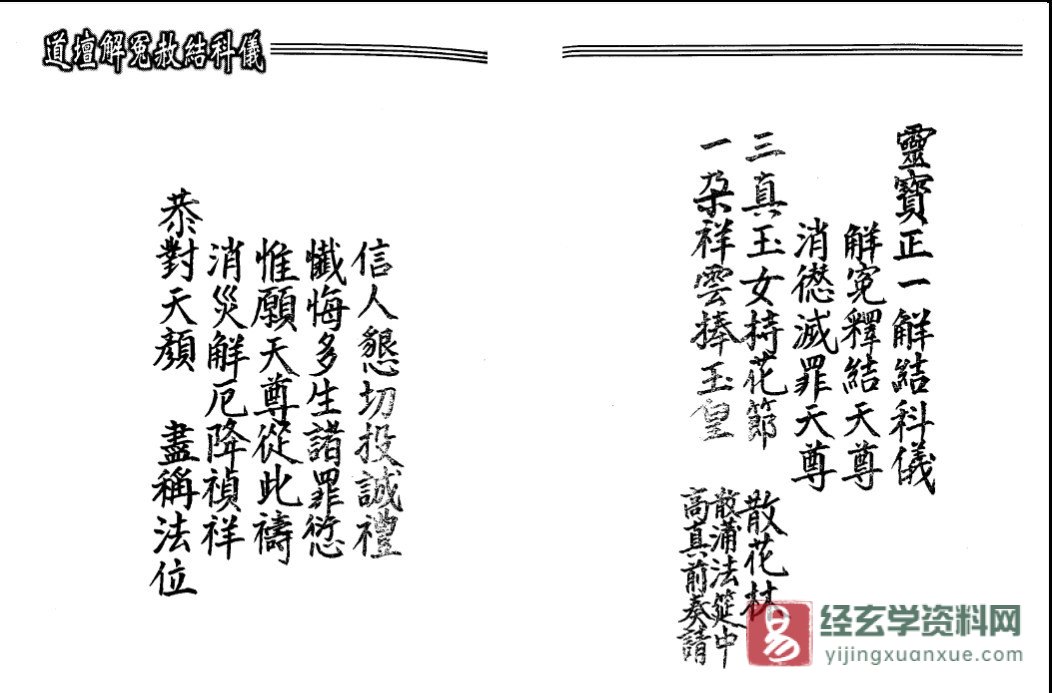 道壇解冤赦結科儀
靈寶正一解結科儀
解冤釋結天尊
消愆滅罪天尊
三真玉女持花節 散花林
一朶祥雲捧玉皇 散蒲法筵中
高真前奏請
信人懇切投誠禮
懺悔多生諸罪愆
惟願天尊從此禱
消災解厄降禎祥
恭對天顏 盡稱法位
经玄学资料网
yijingxuanxue.com
易